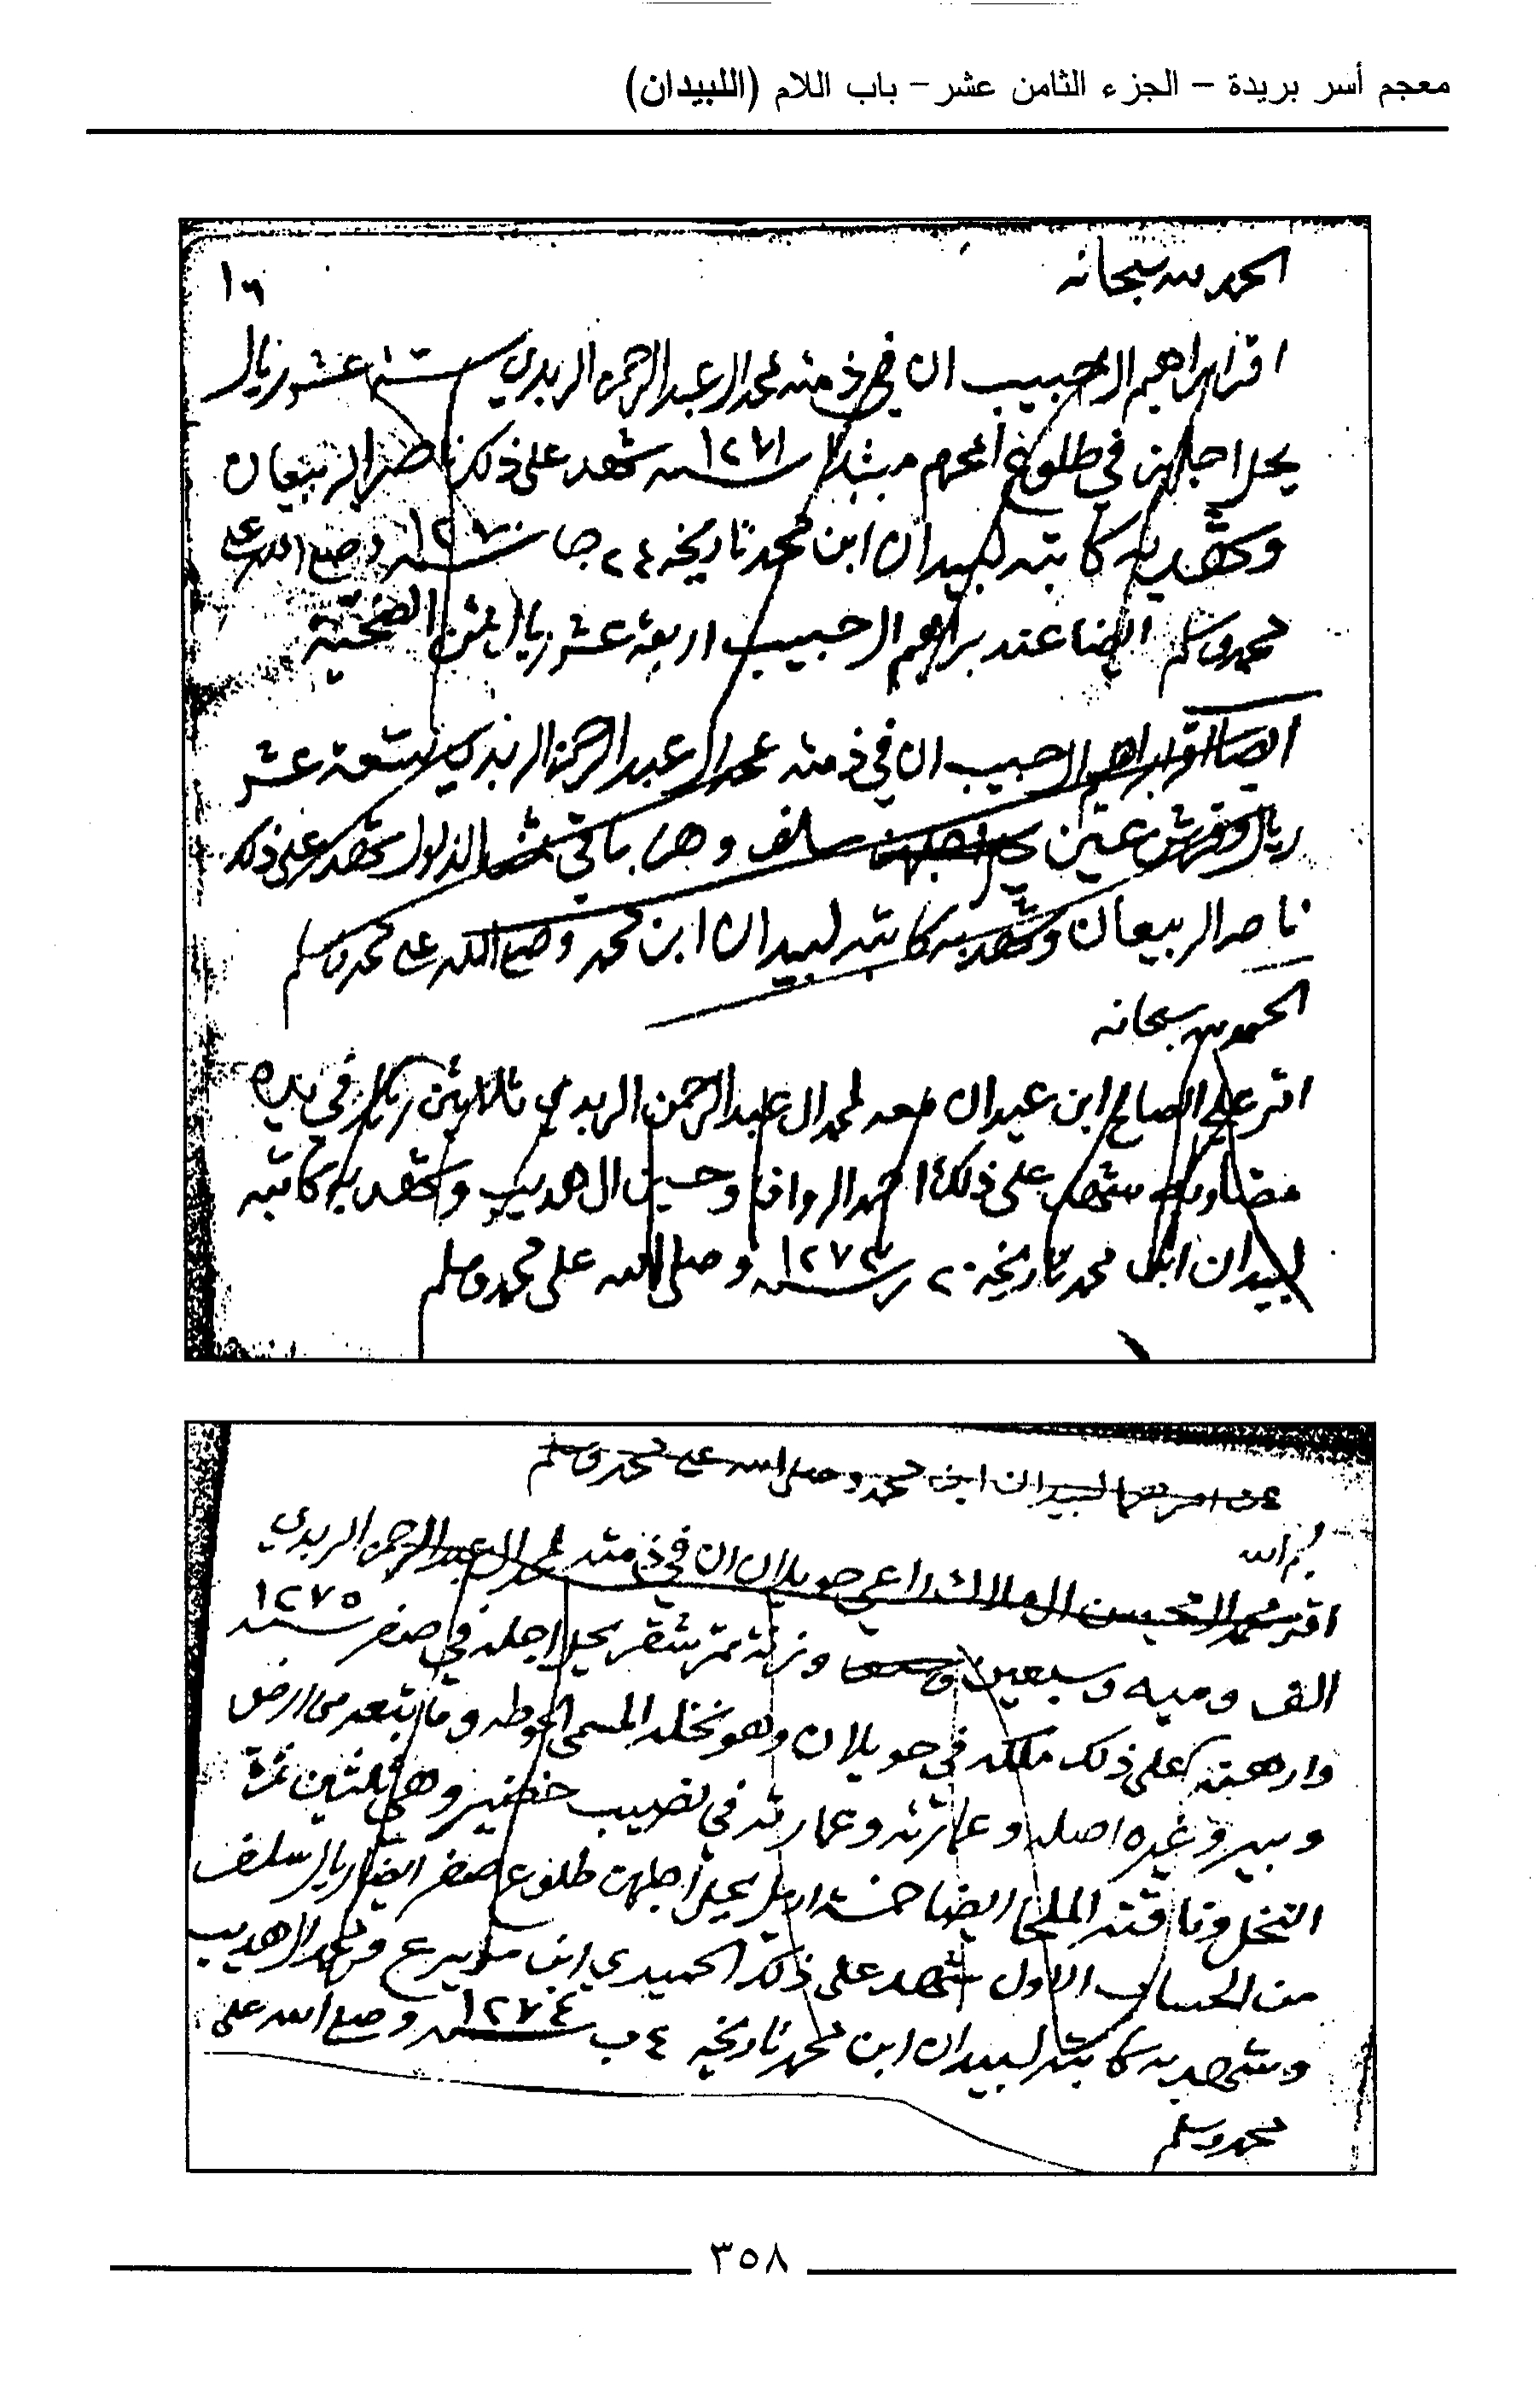 معجم أسر بريدة - الجزء الثامن عشر - باب اللام (اللبيدان)
الحمد لله سبحانه
١٦
اقر ابراهيم الحبيب ان في ذمته لمحمد ال عبدالرحمن الربدي ستة عشر ريال
يحل اجلهن في طلوع المحرم مبتدا سنة ١٢٧١ شهد على ذلك ناصر الربيعان
وشهد به كاتبه لبيدان ابن محمد تاريخه ٢٤ جا سنة ١٢٧٠ وصلى الله على
محمد وسلم ايضا عند براهيم الحبيب اربعة عشر ريال ثمن
ايضا اقر ابراهيم الحبيب ان في ذمته لمحمد ال عبدالرحمن الربدي تسعة عشر
ريال وقرش عين يحل اجلهن سلف وهن باقي الذلول شهد على ذلك
ناصر الربيعان وشهد به كاتبه لبيدان ابن محمد وصلى الله على محمد وسلم
الحمد لله سبحانه
اقر علي الصالح ابن عيدان معه لمحمد ال عبدالرحمن الربدي ثلاثين ريال في يده
مضاربه شهد على ذلك احمد الرواف وحسين ال هديب وشهد به كاتبه
لبيدان ابن محمد تاريخه ٢٠ ر سنة ١٢٧٣ وصلى الله على محمد وسلم
لبيدان ابن محمد وصلى الله على محمد وسلم
بسم الله
اقر محمد المحيسن ال ملاك راعي حويلان ان في ذمته لمحمد ال عبدالرحمن الربدي
الف وميه وسبعين وزنة تمر شقر يحل اجله في صفر سنة ١٢٧٥
وارهنه على ذلك ملكه في حويلان وهو نخله المسمى الحوطه وما يتبعه من ارض
وبير وغيره اصله وعمارته وعمارته في نصيب خضير وهي ثلثين ثمرة
النخل وناقته الملحا ايضا خمسة اريل يحل اجلهن طلوع صفر ايضا ريال سلف
من الحساب الاول شهد على ذلك الحميدي ابن وفهد ال هديب
وشهد به كاتبه لبيدان ابن محمد تاريخه ٤ ب سنة ١٢٧٤ وصلى الله على
محمد وسلم
٣٥٨